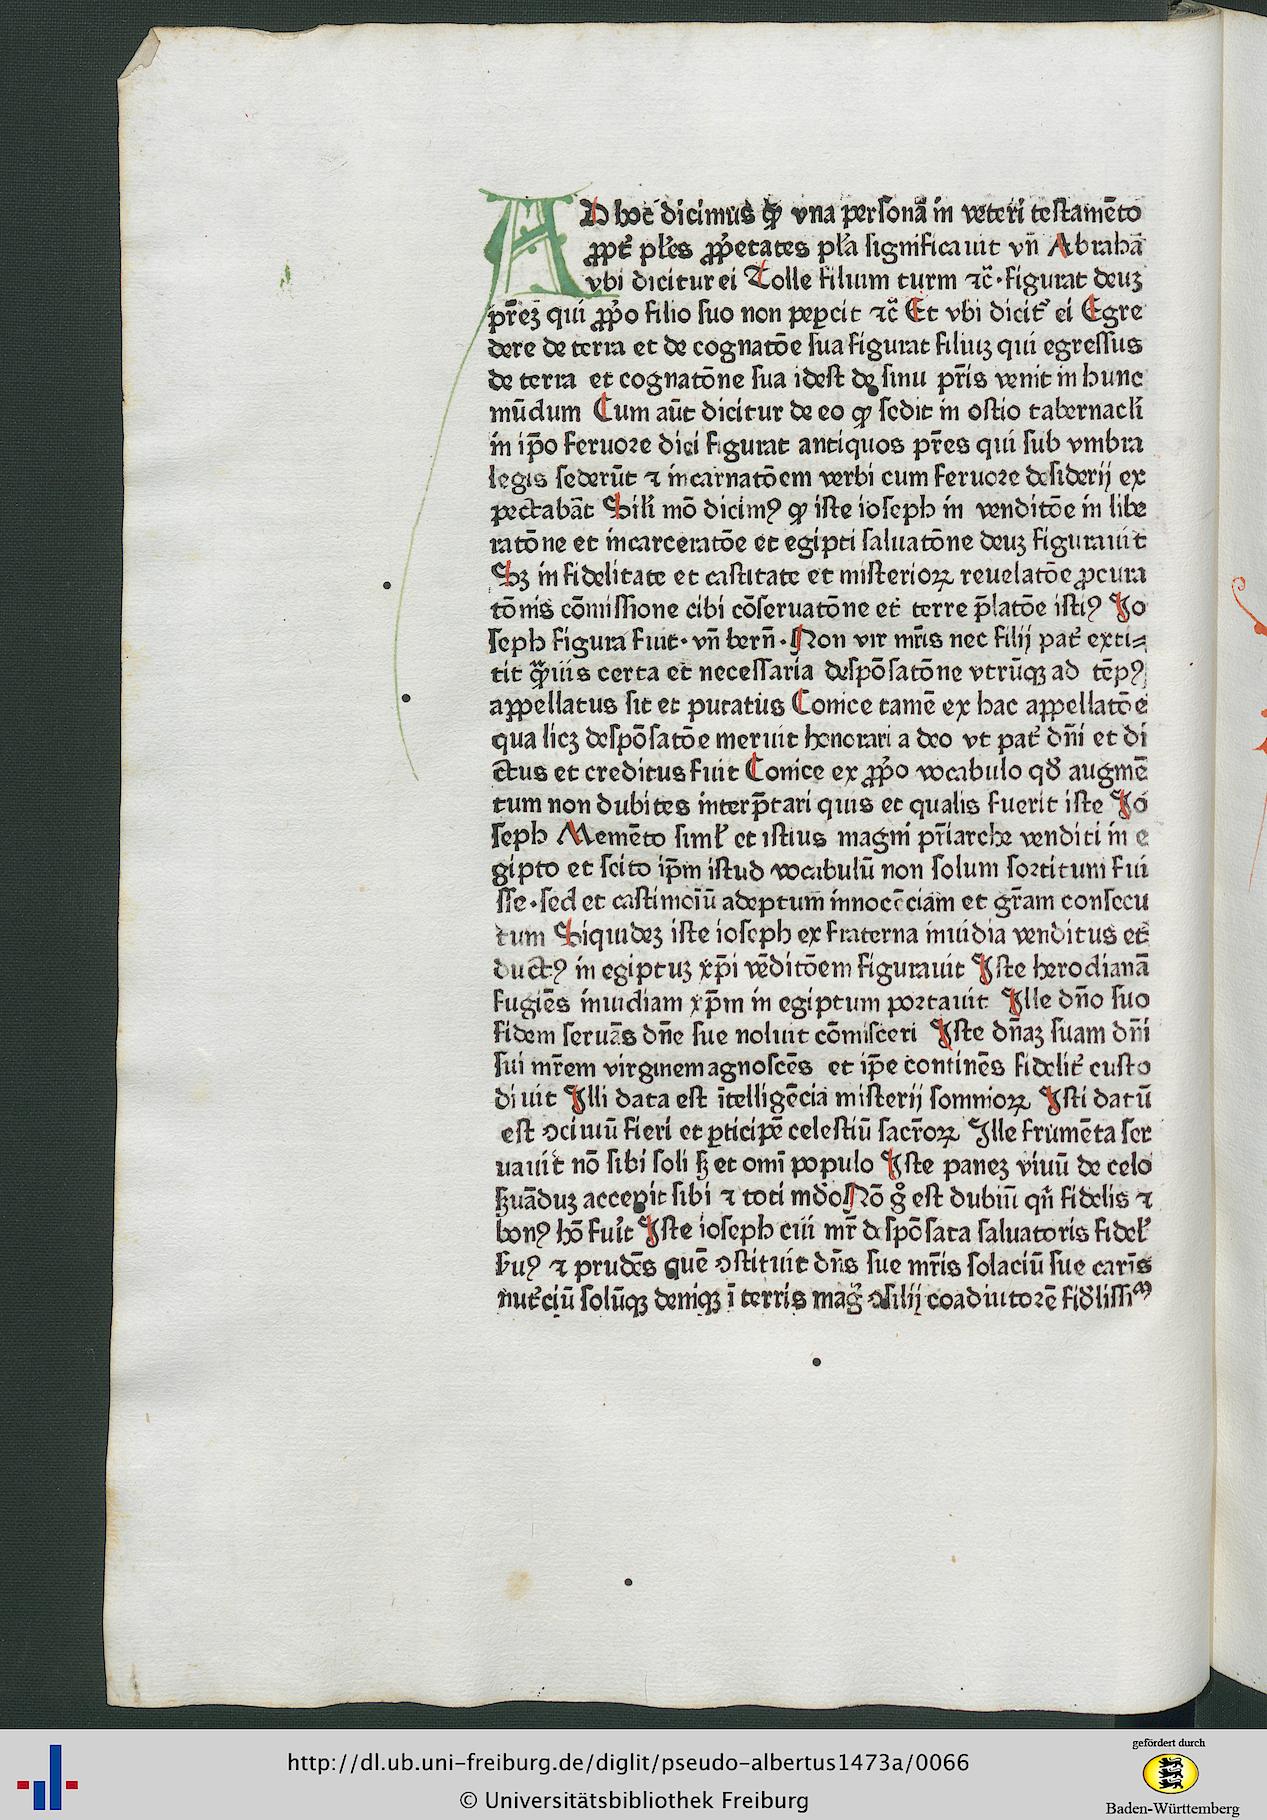 AD hoc̄ dicimus ꝙ vna persona in veteri testamēto
ꝓpt̃ pl̃es ꝓṗetates pl̃a significauit vñ Abrahā
vbi dicitur ei Tolle filium tuum ⁊c̃· figurat deuꝫ
pr̃eꝫ qui ꝓṗo filio suo non peꝑcit ⁊c̃ Et vbi dicit̃ ei Egre
dere de terra et de cognatōe sua figurat filiuꝫ qui egressus
de terra et cognatōne sua idest de sinu pr̃is venit in hunc
mūdum Cum aūt dicitur de eo ꝙ sedit in ostio tabernacl̃i
in ip̄o feruore diei figurat antiquos pr̃es qui sub vmbra
legis sederūt ⁊ incarnatōem verbi cum feruore desiderij ex
pectabāt Sil̃i mō dicimꝰ ꝙ iste ioseph in venditōe in libe
ratōne et incarceratōe et egipti saluatōne deuꝫ figurauit
Sꝫ in fidelitate et castitate et misterioꝝ reuelatōe ꝓcura
tōnis cōmissione cibi cōseruatōne et terre p̄latōe istiꝰ Jo
seph figura fuit· vñ berñ· Non vir mr̃is nec filij pat̃ exti⸗
tit q̃uis certa et necessaria despōsatōne vtrūqꝫ ad tēpꝰ
appellatus sit et putatus Conice tamē ex hac appellatōe
qua licꝫ despōsatōe meruit honorari a deo vt pat̃ dñi et di
ctus et creditus fuit Conice ex ꝓṗo vocabulo qð augmē
tum non dubites interp̄tari quis et qualis fuerit iste Jo
seph Memēto siml̃ et istius magni pr̃iarche venditi in e
gipto et scito ip̄m istud vocabulū non solum sortitum fui
sse· sed et castimoīū adeptum innocēciam et gr̃am consecu
tum Siquideꝫ iste ioseph ex fraterna inuidia venditus et
ductꝰ in egiptuꝫ xp̄i vēditōem figurauit Iste herodianā
fugiēs inuidiam xp̄m in egiptum portauit Ille dño suo
fidem seruās dñe sue noluit cōmisceri Iste dñaꝫ suam dñi
sui mr̃em virginem agnoscēs et ip̄e continēs fidelit̃ custo
diuit Illi data est ītelligēcia misterij somnioꝝ Isti datū
est ꝯciuū fieri et ꝑticipē celestiū sacr̄oꝝ Ille frumēta ser
uauit nō sibi soli sꝫ et omī populo Iste paneꝫ viuū de celo
ẜuāduꝫ accepit sibi ⁊ toti mdo Nō gͦ est dubiū qñ fidelis ⁊
bonꝰ hō fuit Iste ioseph cui mr̃ despōsata saluatoris fidel̃
ẜuꝰ ⁊ prudēs quē ꝯstituit dñs sue mr̃is solaciū sue carīs
nut̃ciū solūqꝫ deniqꝫ ī terris mag̃ ꝯsilij coadiutorē fiðlissiᵐ
http://dl.ub.uni-freiburg.de/diglit/pseudo-albertus1473a/0066
© Universitätsbibliothek Freiburg
gefördert durch
Baden-Württemberg